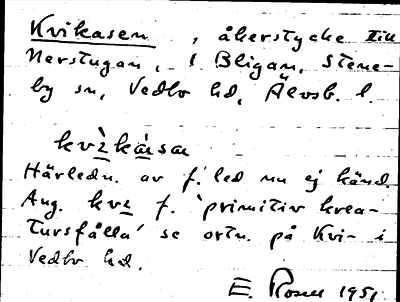 Kvikasen, åkerstycke till
Nerstugan, i Bligan, Stene-
by sn, Vedbo hd, Älvsb. l.
kvìkási̭n
Härledn. av f. led nu ej känd.
Ang. kvi f. 'primitiv krea-
tursfålla' se ortn. på Kvi- i
Vedbo hd.
E. Rosell 1951